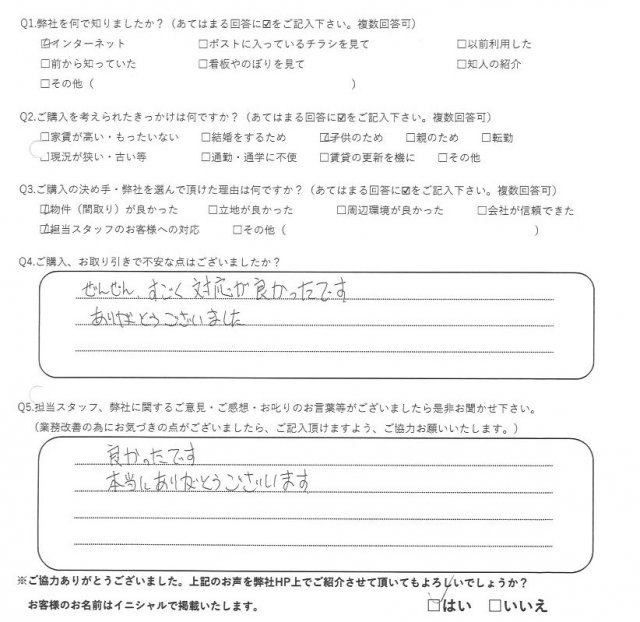 Q1.弊社を何で知りましたか？（あてはまる回答に☑をご記入下さい。複数回答可）
☑インターネット　□ポストに入っているチラシを見て　□以前利用した
□前から知っていた　□看板やのぼりを見て　□知人の紹介
□その他（　　　　　）
Q2.ご購入を考えられたきっかけは何ですか？（あてはまる回答に☑をご記入下さい。複数回答可）
□家賃が高い・もったいない　□結婚をするため　☑子供のため　□親のため　□転勤
□現況が狭い・古い等　□通勤・通学に不便　□賃貸の更新を機に　□その他
Q3.ご購入の決め手・弊社を選んで頂けた理由は何ですか？（あてはまる回答に☑をご記入下さい。複数回答可）
☑物件（間取り）が良かった　□立地が良かった　□周辺環境が良かった　□会社が信頼できた
☑担当スタッフのお客様への対応　□その他（　　　　　）
Q4.ご購入、お取り引きで不安な点はございましたか？
ぜんぜん、すごく対応が良かったです
ありがとうございました
Q5.担当スタッフ、弊社に関するご意見・ご感想・お叱りのお言葉等がございましたら是非お聞かせ下さい。
（業務改善の為にお気づきの点がございましたら、ご記入頂けますよう、ご協力お願いいたします。）
良かったです
本当にありがとうございます
※ご協力ありがとうございました。上記のお声を弊社HP上でご紹介させて頂いてもよろしいでしょうか？
お客様のお名前はイニシャルで掲載いたします。　☑はい　□いいえ